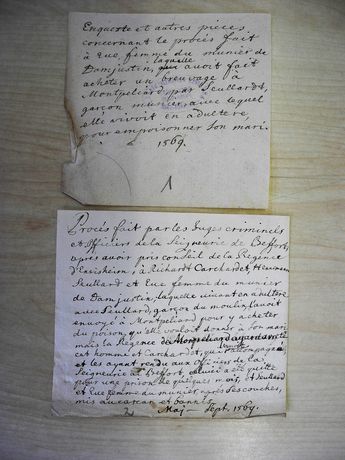 Enqueste et autres pièces
concernant le procés fait
à Eve femme du munier de
Damjustin, laquelle avoit fait
acheter un breuvage à
Montpeliard, par Seullardt,
garçon munier, avec lequel
elle vivoit en adultere,
pour empoisonner son mari.
1569.
1
Procés fait par les Juges criminels
et Officiers de la Seigneurie de Befort,
apres avoir pris conseil de la Regence
d'Ensisheim, à Richardt Carchardet,
Seullard et Eve femme du munier
de Damjustin, laquelle vivant en adultere
avec Seullard, garçon du moulin, l'avoit
envoyé à Montpeliard pour y acheter
du poison, qu'elle vouloit donner à son mari,
mais la Regence de Montpeliard ayant arreté
cet homme et Carchardet, qui l'accompagnoit
et les ayant rendu aux officiers de la
Seigneurie de Befort, celui ci a été quitte
pour une prison de quelques mois, et Seullard
et Eve femme au munier après ses couches,
mis au carcan et bannis.
2 Maj — Sept. 1569.